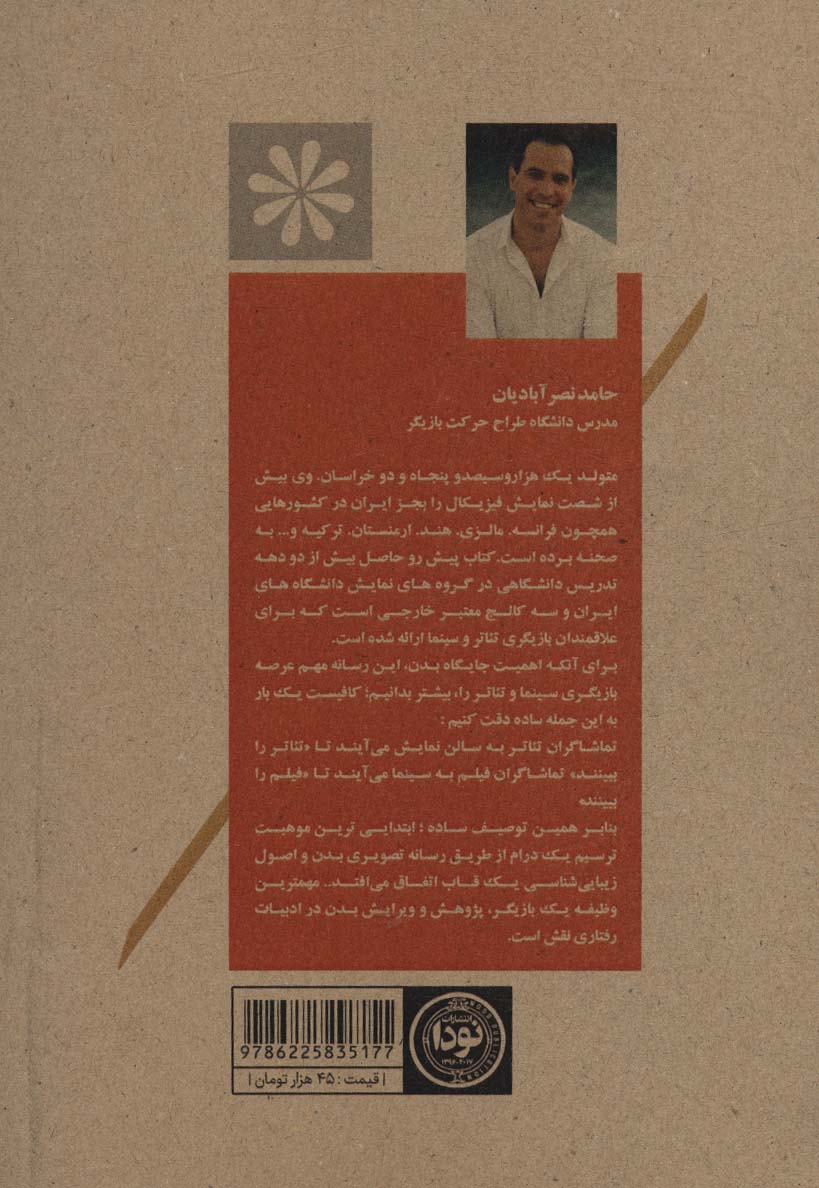 حامد نصرآبادیان
مدرس دانشگاه طراح حرکت بازیگر
متولد یک هزاروسیصدو پنجاه و دو خراسان. وی بیش
از شصت نمایش فیزیکال را بجز ایران در کشورهایی
همچون فرانسه. مالزی. هند. ارمنستان. ترکیه و... به
صحنه برده است.کتاب پیش رو حاصل بیش از دو دهه
تدریس دانشگاهی در گروه های نمایش دانشگاه های
ایران و سه کالج معتبر خارجی است که برای
علاقمندان بازیگری تئاتر و سینما ارائه شده است.
برای آنکه اهمیت جایگاه بدن، این رسانه مهم عرصه
بازیگری سینما و تئاتر را، بیشتر بدانیم؛ کافیست یک بار
به این جمله ساده دقت کنیم :
تماشاگران تئاتر به سالن نمایش می‌آیند تا «تئاتر را
ببینند» تماشاگران فیلم به سینما می‌آیند تا «فیلم را
ببینند»
بنابر همین توصیف ساده ؛ ابتدایی ترین موهبت
ترسیم یک درام از طریق رسانه تصویری بدن و اصول
زیبایی‌شناسی یک قاب اتفاق می‌افتد.. مهمترین
وظیفه یک بازیگر، پژوهش و ویرایش بدن در ادبیات
رفتاری نقش است.
9786225835177
| قیمت : ۴۵ هزار تومان |
انتشارات
نودا
۱۳۹۶-۲۰۱۷
NOOD PUBLICATION